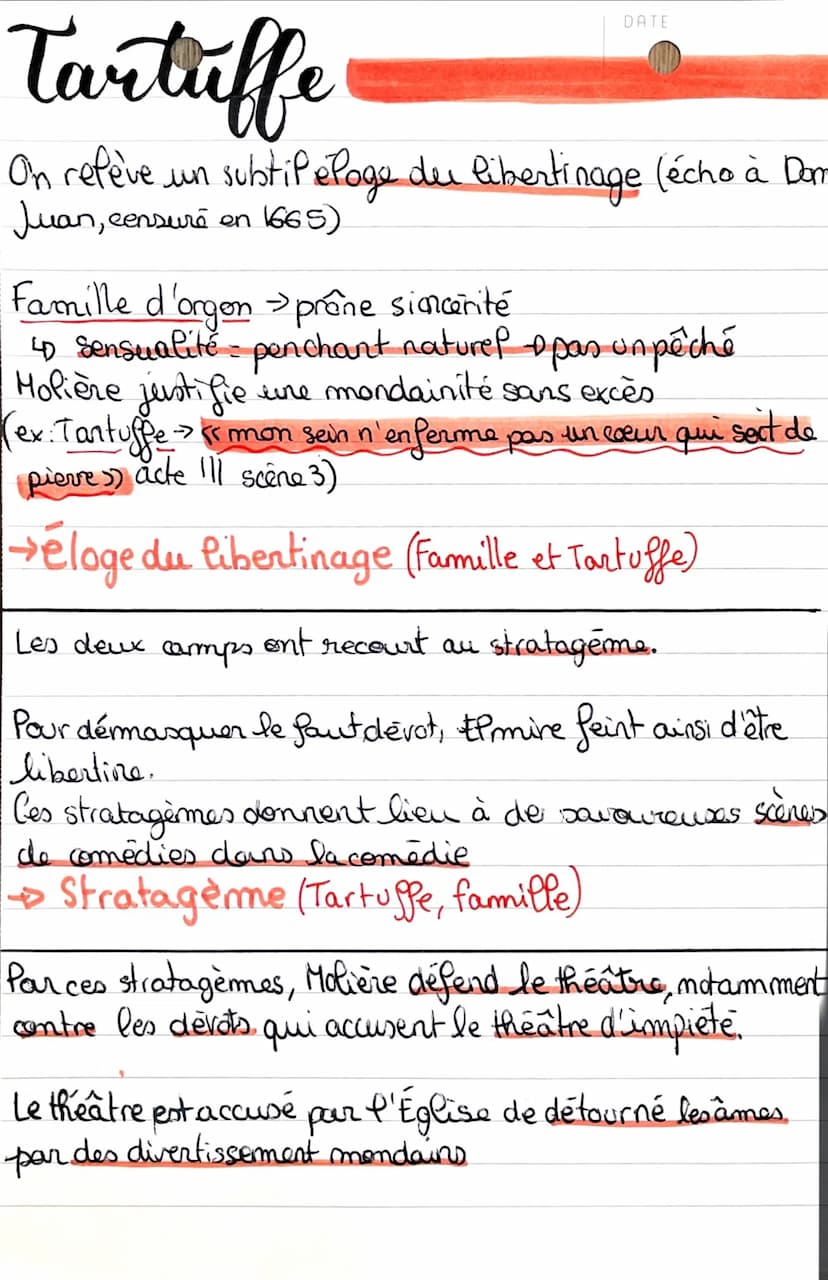 DATE
Tartuffe
On relève un subtil éloge du libertinage (écho à Dom
Juan, censuré en 1665)
Famille d'orgon → prône sincérité
↳ sensualité = penchant naturel → pas un pêché
Molière justifie une mondainité sans excès
(ex : Tartuffe → « mon sein n'enferme pas un cœur qui soit de
pierre » acte III scène 3)
→ Éloge du libertinage (Famille et Tartuffe)
Les deux camps ont recourt au stratagème.
Pour démasquer le faut dévot, Elmire feint ainsi d'être
libertine.
Ces stratagèmes donnent lieu à de savoureuses scènes
de comédies dans la comédie
→ Stratagème (Tartuffe, famille)
Par ces stratagèmes, Molière défend le théâtre, notamment
contre les dévots qui accusent le théâtre d'impiété.
Le théâtre est accusé par l'Église de détourné les âmes
par des divertissement mondains